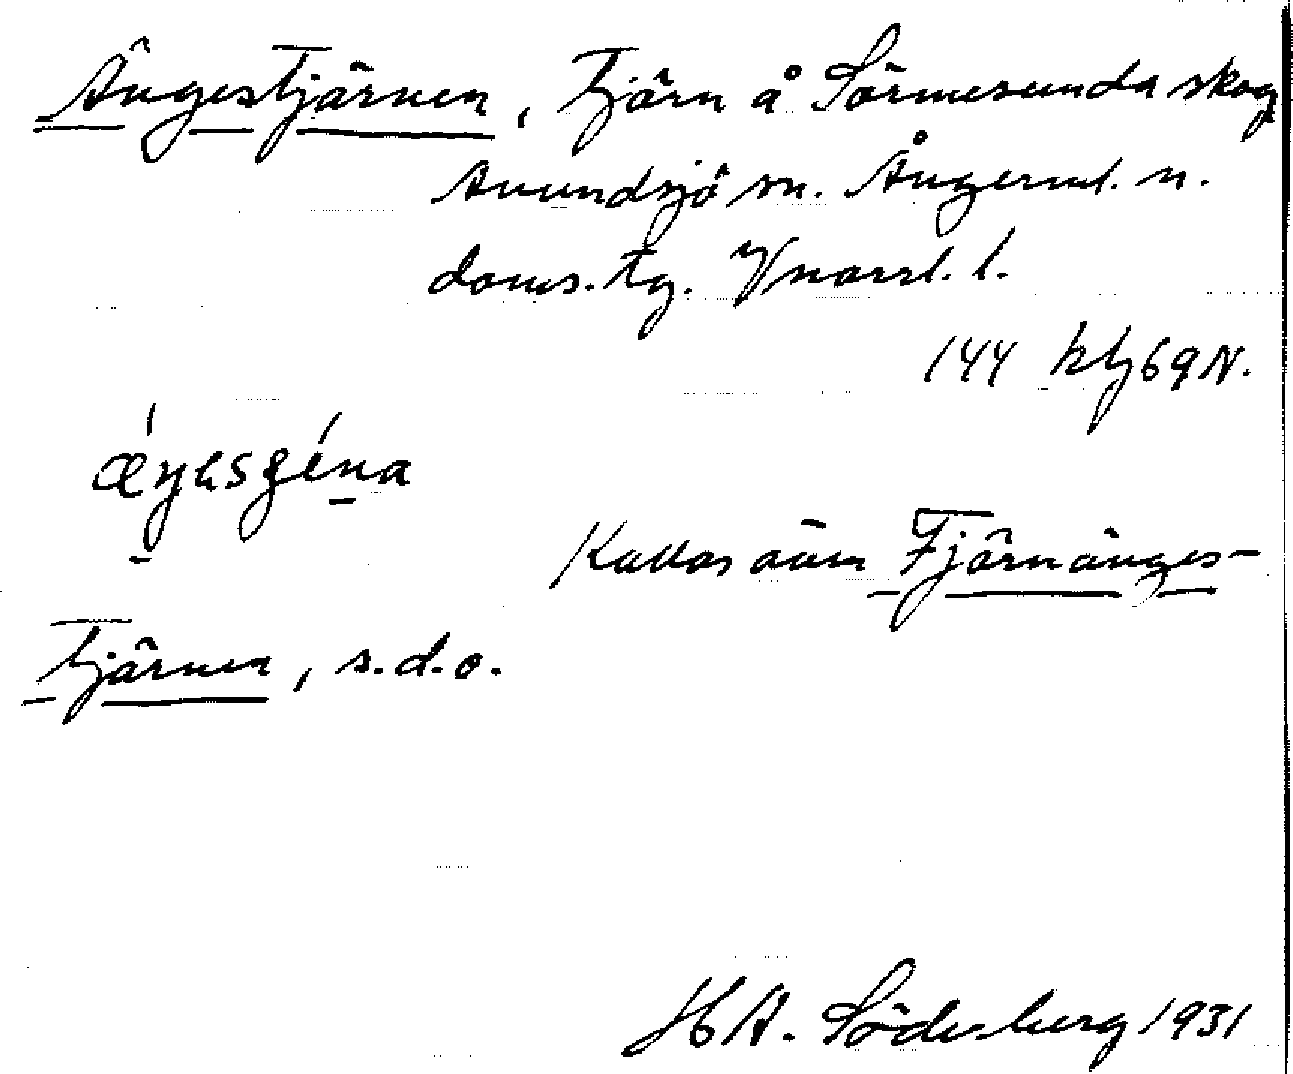 Ängestjärnen, Tjärn å Sörmesunda skog
Anundsjö sn. Ångerml. n.
doms. tg. Vnorrl. l.
144 hlj69N.
Kallas även Tjärnänges-
tjärnen, s.d.o.
H A. Söderberg 1931